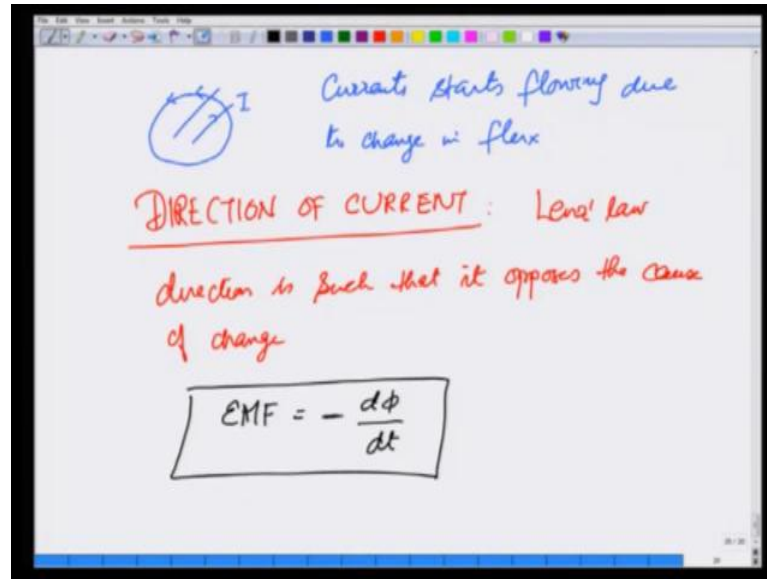 File Edit View Insert Actions Tools Help
I
Currents starts flowing due
to change in flux
DIRECTION OF CURRENT : Lenz' law
direction is such that it opposes the cause
of change
EMF = - dφ/dt